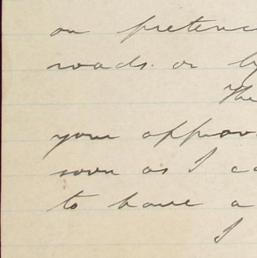 on pretenc
roads. or by
The
your approv
soon as I ca
to have a
I